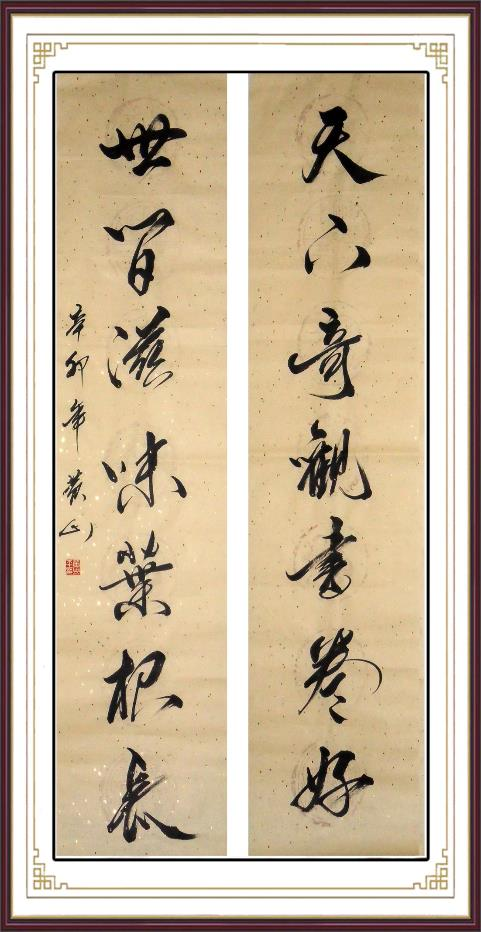 天下奇觀書卷好
世間滋味葉根長
辛卯年黄山